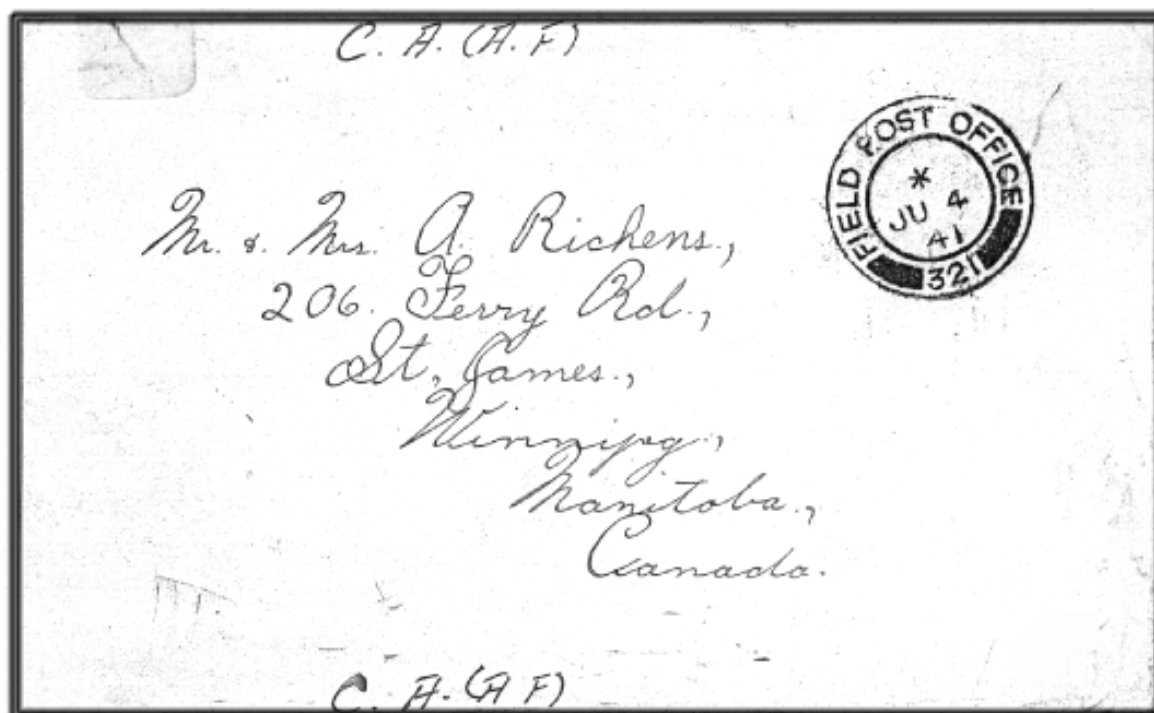 C. A. (A. F)
FIELD POST OFFICE
*
JU 4
41
321
Mr. & Mrs. A. Richens.,
206. Ferry Rd.,
St, James.,
Winnipg.,
Manitoba.,
Canada.
C. A. (A F)